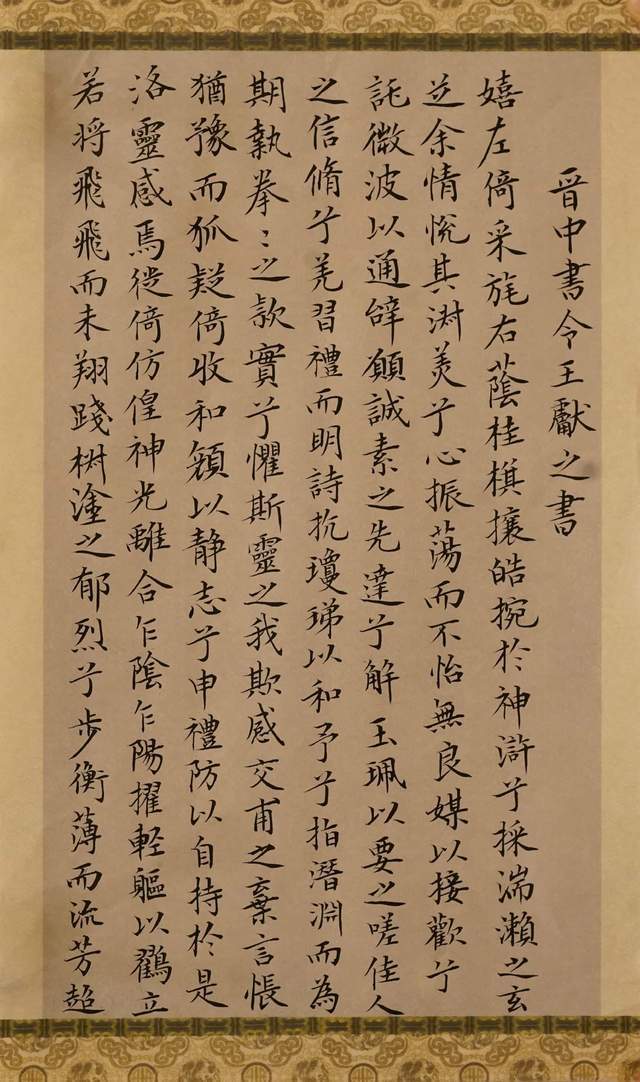 晉中書令王獻之書
嬉左倚采旄右蔭桂棋攘皓捥於神滸兮採湍瀨之玄
芝余情悅其淑美兮心振蕩而不怡無良媒以接歡兮
託微波以通辭願誠素之先達兮解玉珮以要之嗟佳人
之信脩兮羌習禮而明詩抗瓊珶以和予兮指潛淵而為
期執拳〻之款實兮懼斯靈之我欺感交甫之棄言悵
猶豫而狐疑倚收和顏以静志兮申禮防以自持於是
洛靈感焉徙倚仿偟神光離合乍陰乍陽擢軽軀以鶴立
若将飛飛而未翔踐椒塗之郁烈兮步衡薄而流芳超